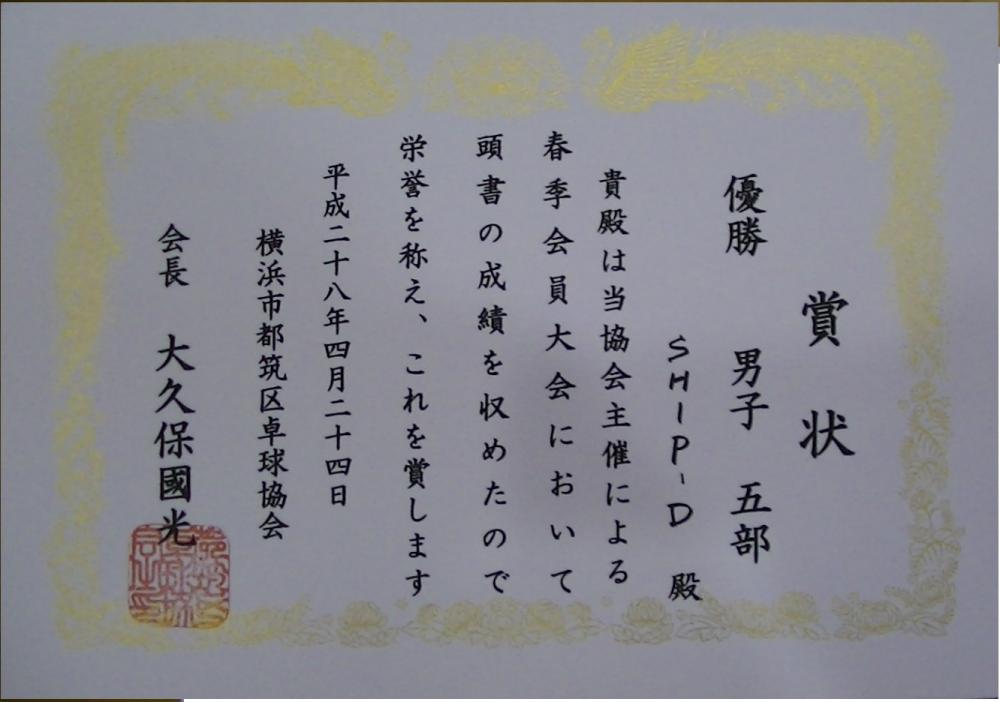 賞状
優勝 男子 五部
SHIP-D 殿
貴殿は当協会主催による
春季会員大会において
頭書の成績を収めたので
栄誉を称え、これを賞します
平成二十八年四月二十四日
横浜市都筑区卓球協会
会長 大久保國光